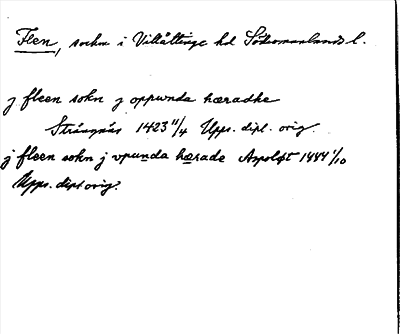 Flen, socken i Villåttinge hd Södermanlands l.
j fleen sokn j oppunda hæradhe
Strängnäs 1423 11/4 Upps. dipl. orig.
j fleen sokn j vpunda hærade Aspoløt 1444 1/10
Upps. dipl orig.